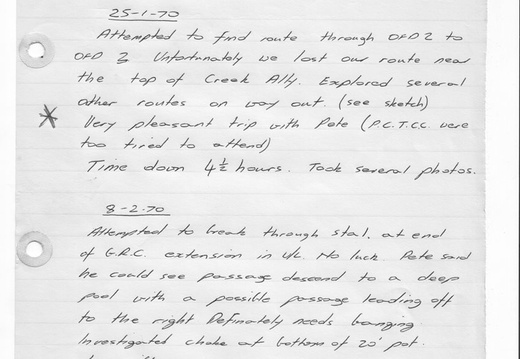 25-1-70
Attempted to find route through OFD 2 to
OFD 3 Unfortunately we lost our route near
the top of Creek Ally. Explored several
other routes on way out. (see sketch)
* Very pleasant trip with Pete (P.C.T.CC. were
too tired to attend)
Time down 4½ hours. Took several photos.
8-2-70
Attempted to break through stal. at end
of G.R.C. extension in WL. No luck. Pete said
he could see passage descend to a deep
pool with a possible passage leading off
to the right Definately needs banging
Investigated choke at bottom of 20' pot.